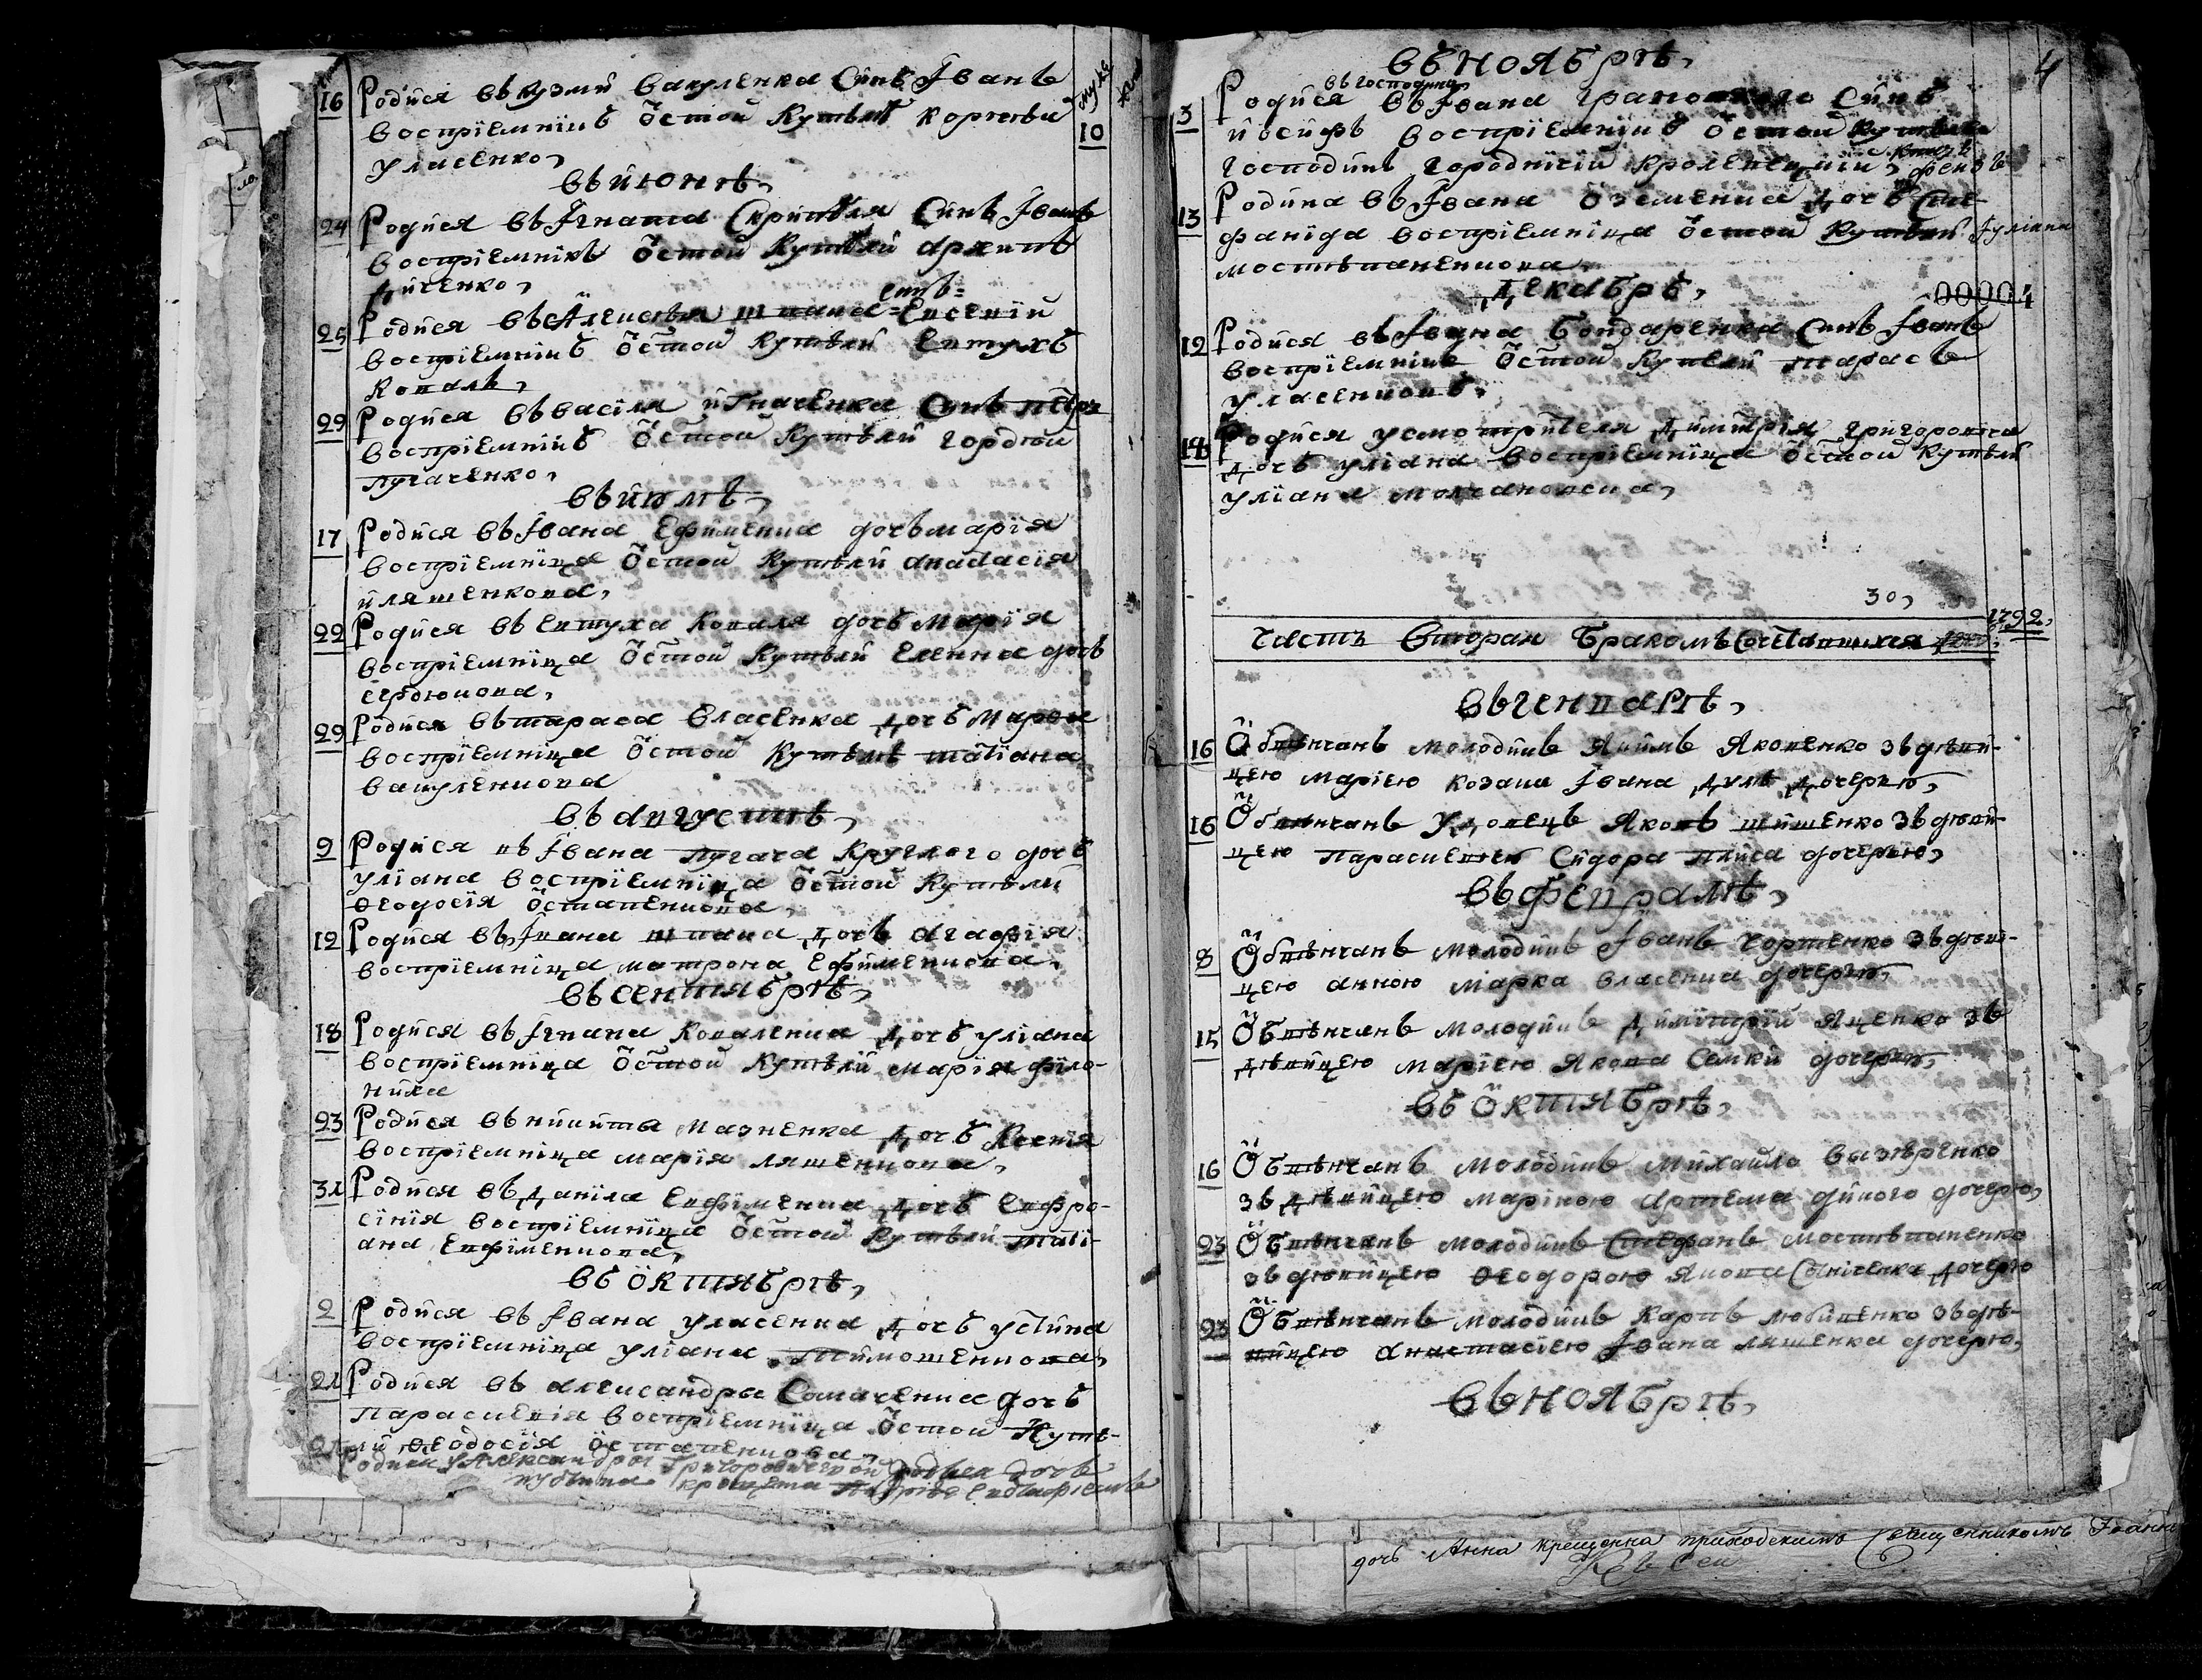 16 Родися въ Кузми Вакуленка Синъ Іванъ
воспріемникъ ѿ стой Купѣлѣ Корнѣй
Уласенко,
10
въ июнѣ,
24 Родися въ Ігната Синъ Іванъ
воспріемникъ ѿ стой Купѣлй Архипъ
синъ=
25 Родися въ Алексѣя шпака = Евсевій
воспріемникъ ѿ стой Купѣлй Евтухъ
Коваль,
29 Родися въ василя игначенка Синъ петръ
воспріемникъ ѿ стой Купѣлй гордѣй
пугаченко,
въ июлѣ,
17 Родися въ Івана Ефименка дочь марія
воспріемница ѿ стой Купѣлй анастасія
иляшенкова,
22 Родися въ Евтуха Коваля дочь Марія
воспріемница ѿ стой Купѣлй Еленна дочь
сердюкова,
29 Родися въ тараса Власенка дочъ Марѳа
воспріемница ѿ стой Купѣлѣ татіана
вакуленкова
въ августѣ,
9 Родися въ Івана пугача Круглого дочъ
уліана воспріемница ѿ стой Купѣлй
Ѳеодосія Остапенкова,
12 Родися въ Івана шпака дочъ агафія
воспріемница матрона Ефименкова,
въ сентябрѣ,
18 Родися въ Ігната Коваленка дочъ уліана
воспріемница ѿ стой Купѣлй марія філо-
ниха
23 Родися въ никиты мазненка дочъ Ксенія
воспріемница марія ляшенкова,
31 Родися въ даніла Евфіменка дочъ Евфро-
сінія воспріемница ѿ стой Купѣлй татї-
ана Евфіменкова,
въ октябрѣ,
2 Родися въ Івана уласенка дочъ устина
воспріемница уліана Тимошенкова,
21 Родися въ александра Сомаченка дочъ
параскевія воспріемница ѿ стой Купѣ-
лй Ѳеодосія Остапенкова,
въ ноябрѣ,
4
въ господина
3 Родися въ Івана Синъ
иосифъ воспріемникъ ѿ стой Купѣлй
господинъ городничій
13 Родися въ Івана дочъ Сте-
фанида воспріемница ѿ стой Купѣлй Іуліана
мостѣпаненкова
декабрѣ,
00004
12 Родися въ Івана бондаренка Синъ Іванъ
воспріемникъ ѿ стой Купѣлй тарасъ
уласенковъ,
14 Родися у смотрителя димитрія григоровича
дочъ уліана воспріемница ѿ стой Купѣлй
уліана молчановска,
30,
1792,
часть вторая бракомъ сочетавшихся
въ генварѣ,
16 Обвѣнчанъ молодикъ Якимъ Яковенко зъ дѣви-
цею маріею козака Івана дулѣ дочерю,
16 Обвѣнчанъ удовецъ Яковъ шишенко зъ дѣви-
цею параскевією Сидора плиса дочерью,
въ февралѣ,
8 Обвѣнчанъ молодикъ Іванъ чортенко зъ дѣви-
цею анною марка власенка дочерю,
15 Обвѣнчанъ молодикъ димитрій яценко зъ
дѣвицею маріею Якова Семки дочерю,
въ октябрѣ,
16 Обвѣнчанъ молодикъ михайло
зъ дѣвицею мариною артема дикого дочерю,
23 Обвѣнчанъ молодикъ Стефанъ мостѣпаненко
зъ дѣвицею Ѳеодорою Якова дочерю
23 Обвѣнчанъ молодикъ Карпъ любименко зъ дѣ-
вицею анастасіею Івана ляшенка дочерю,
въ ноябрѣ,
дочъ Анна крещенна приходскимъ Священникомъ Іоанн